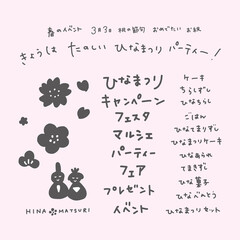 春のイベント 3月3日 桃の節句 おめでたい お祝
きょうは たのしい ひなまつり パーティー！
ひなまつり
キャンペーン
フェスタ
マルシェ
パーティー
フェア
プレゼント
イベント
ケーキ
ちらしずし
ひなちらし
ごはん
ひなてまりずし
ひなまつりケーキ
ひなあられ
てまきずし
ひな菓子
ひなべんとう
ひなまつりセット
HINA MATSURI